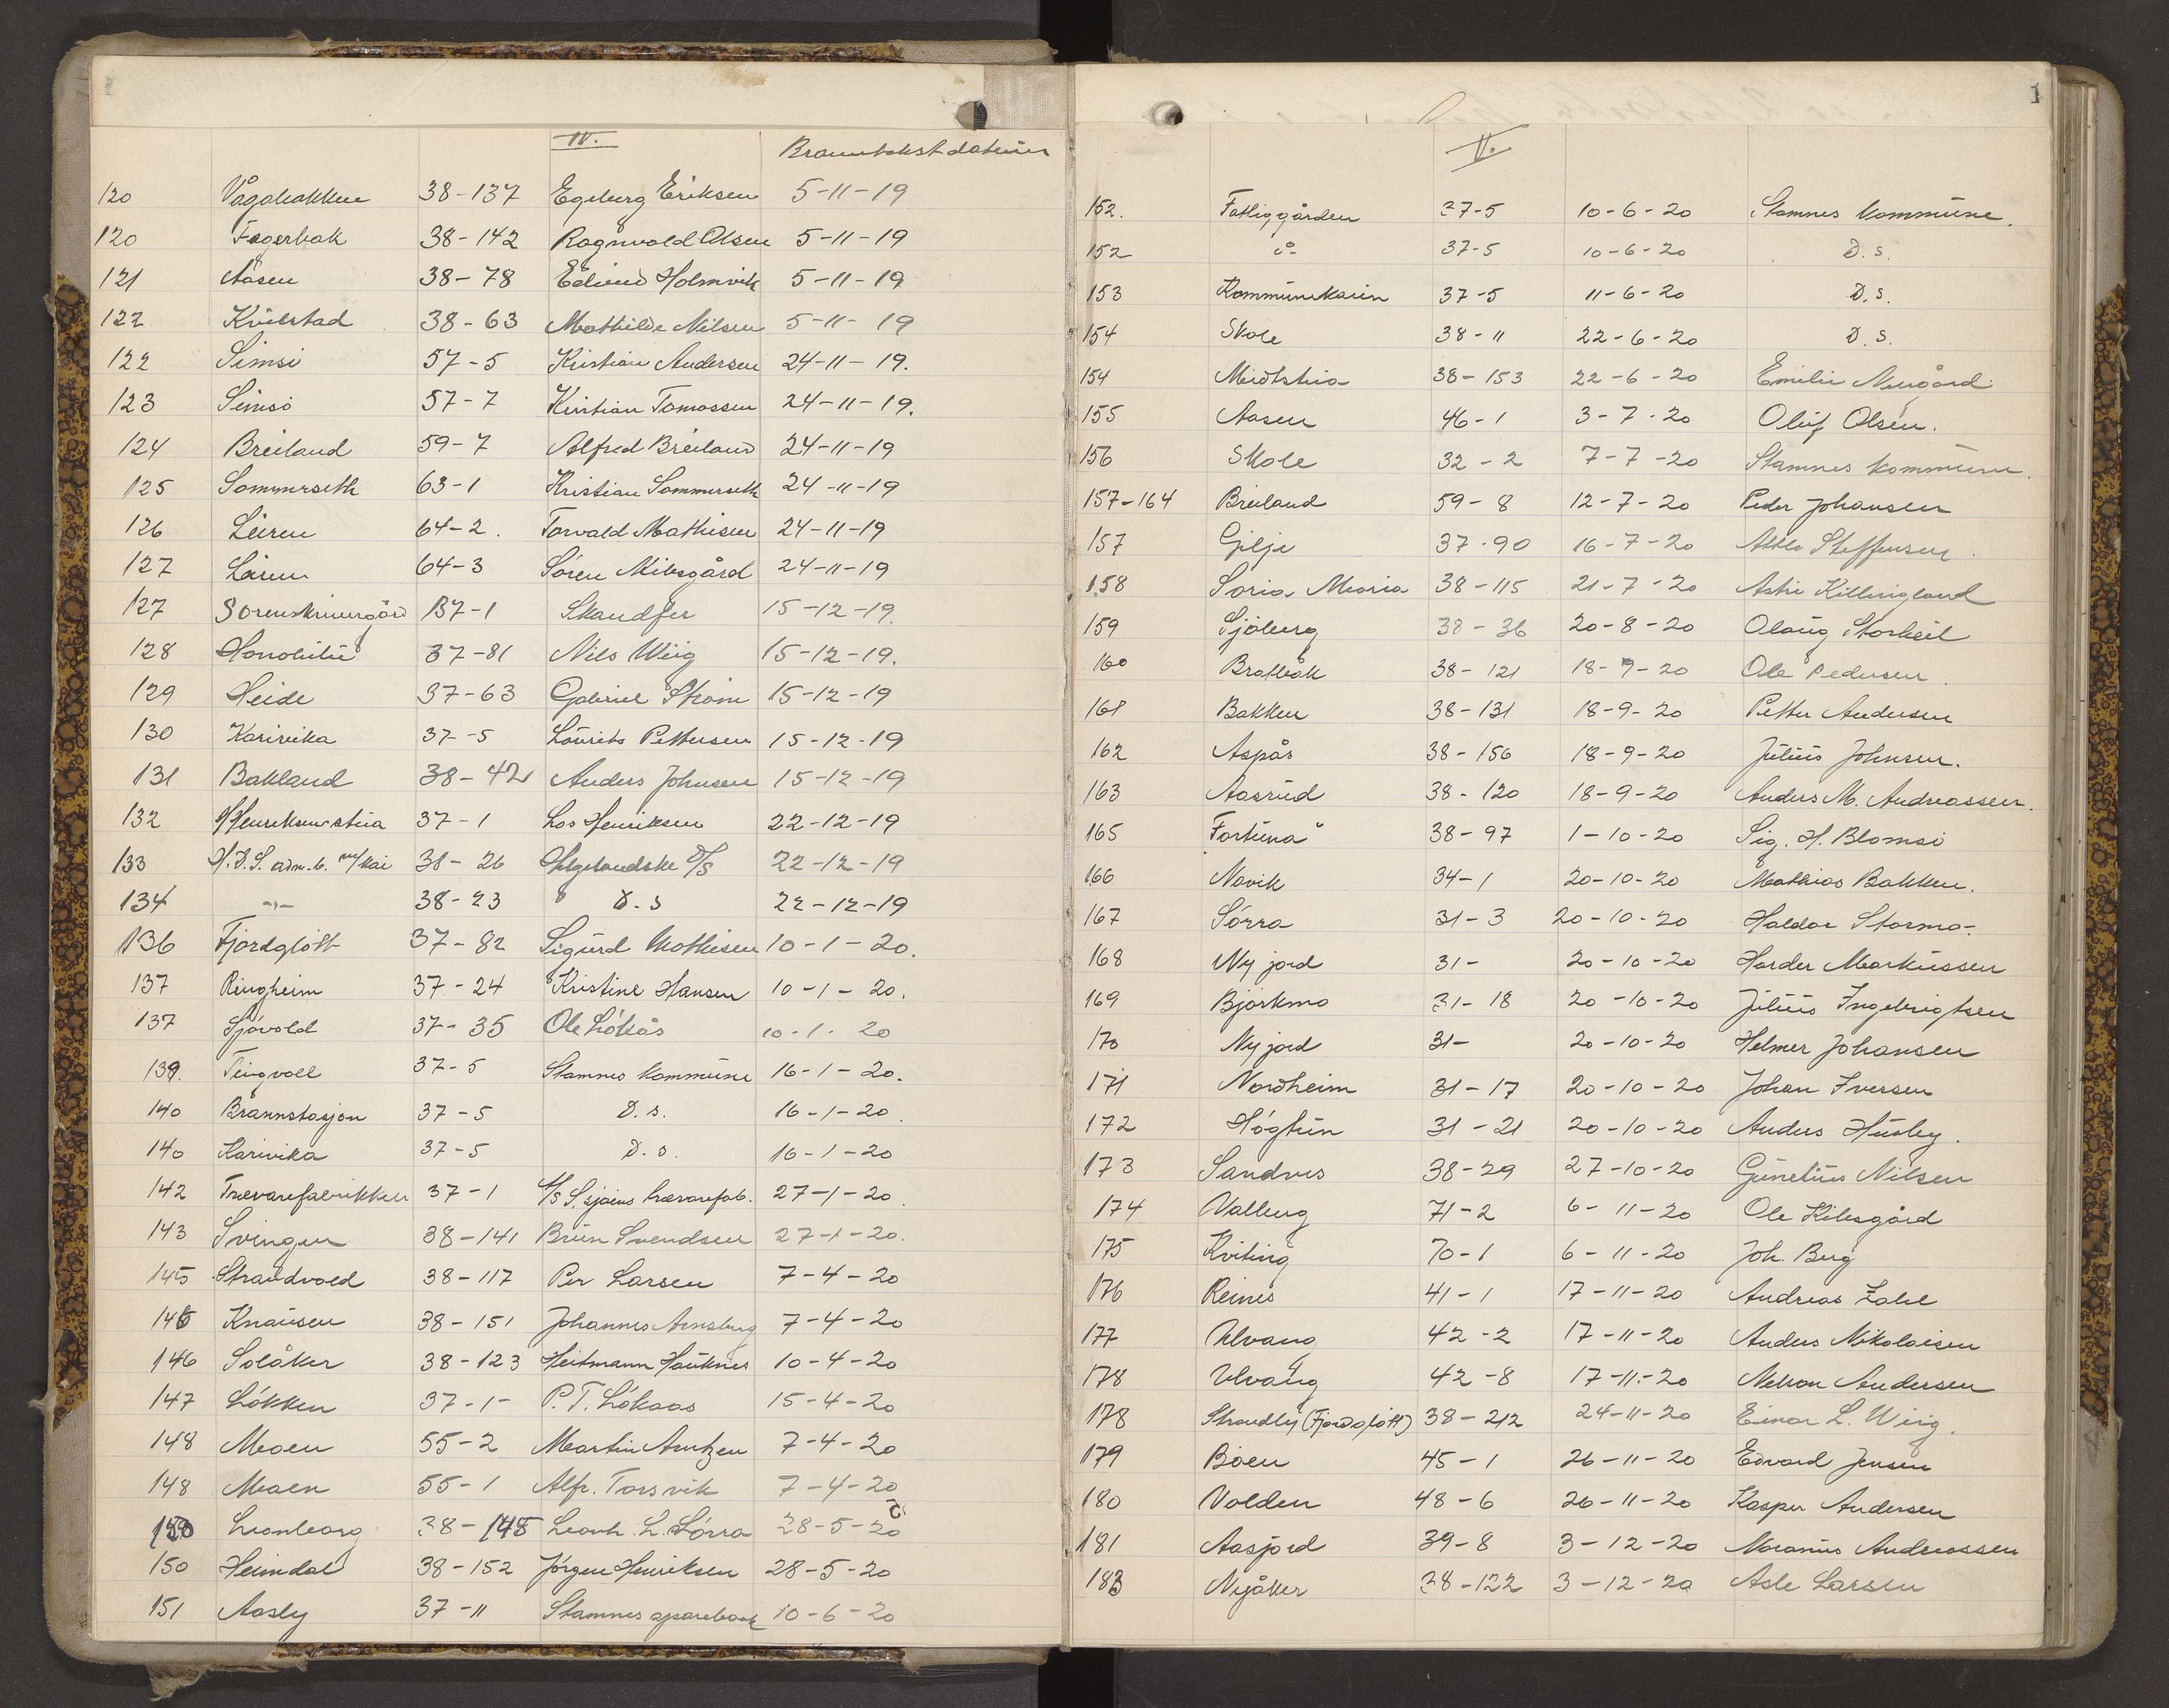 IV.
Branntakst datum
120 Vågabakken 38-137 Egeberg Eriksen 5-11-19
120 Fagerbak 38-142 Ragnvald Olsen 5-11-19
121 Aasen 38-78 Edvind Holmvik 5-11-19
122 Kvilstad 38-63 Mathilde Nilsen 5-11-19
122 Simsø 57-5 Kristian Andersen 24-11-19.
123 Simsø 57-7 Kristian Tomassen 24-11-19.
124 Breiland 59-7 Alfred Breiland 24-11-19
125 Sommerseth 63-1 Kristian Sommerseth 24-11-19
126 Leiren 64-2. Torvald Mathisen 24-11-19
127 Leiren 64-3 Sören Nilsgård 24-11-19
127 Sorenskrivergård 37-1 Skandfer 15-12-19.
128 37-81 Nils Wiig 15-12-19.
129 Heide 37-63 Gabriel Strøm 15-12-19
130 Karivika 37-5 Laurits Pettersen 15-12-19
131 Bakland 38-42 Anders Johnsen 15-12-19
132 Henriksenstua 37-1 Los Henriksen 22-12-19
133 H.D.S. adm.b. m/kai 38-26 Helgelandske D/S 22-12-19
134 -"- 38-23 D.s 22-12-19
136 Fjordgløtt 37-82 Sigurd Mathisen 10-1-20.
137 Ringheim 37-24 Kristine Hansen 10-1-20.
137 Sjøvold 37-35 Ole Lökås 10-1-20
139. Tingvoll 37-5 Stamnes kommune 16-1-20.
140 Brannstasjon 37-5 D.s. 16-1-20.
140 Karivika 37-5 D.s. 16-1-20
142 Trevarefabrikken 37-1 A/S S.sjøens trævarefab. 27-1-20.
143 Svingen 38-141 Brun Svendsen 27-1-20.
145 Strandvold 38-117 Per Larsen 7-4-20
146 Knausen 38-151 Johannes Arnsberg 7-4-20
146 Solåker 38-123 Heitmann Hauknes 10-4-20
147 Lökken 37-1- P.T. Lökaas 15-4-20
148 Moen 55-2 Martin Arntzen 7-4-20
148 Moen 55-1 Alfr. Torsvik 7-4-20
150 Leonborg 38-148 Leonh. L. Sörra 28-5-20
150 Heimdal 38-152 Jörgen Henriksen 28-5-20
151 Aasly 37-11 Stamnes sparebank 10-6-20
1
V.
152. Fattiggården 37-5 10-6-20 Stamnes kommune.
152 37-5 10-6-20 D.s.
153 Kommunekaien 37-5 11-6-20 D.s.
154 Skole 38-11 22-6-20 D.s.
154 Midtstua 38-153 22-6-20 Emilie Nergård
155 Aasen 46-1 3-7-20 Oluf Olsen.
156 Skole 32-2 7-7-20 Stamnes kommune.
157-164 Breiland 59-8 12-7-20 Peder Johansen
157 Gilje 37-90 16-7-20 Steffensen.
158 Soria Moria 38-115 21-7-20 Astri Killingland
159 Sjøberg 38-36 20-8-20 Olaug Storkeil
160 Bratbak 38-121 18-9-20 Ole Pedersen.
161 Bakken 38-131 18-9-20 Petter Andersen
162 Aspås 38-156 18-9-20 Julius Johnsen.
163 Aasrud 38-120 18-9-20 Anders M. Andreassen.
165 "Fortuna" 38-97 1-10-20 Sig. H. Blomsø
166 Novik 34-1 20-10-20 Mathias Bakken.
167 Sörra 31-3 20-10-20 Haldor Stormo-
168 Nyjord 31- 20-10-20 Harder Markussen
169 Bjørkmo 31-18 20-10-20 Julius Ingebrigtsen
170 Nyjord 31- 20-10-20 Helmer Johansen
171 Nordheim 31-17 20-10-20 Johan Iversen
172 Högtun 31-21 20-10-20 Anders Husby.
173 Sandnes 38-29 27-10-20 Gunelius Nilsen
174 Valberg 71-2 6-11-20 Ole Kilsgård
175 Kviting 70-1 6-11-20 Joh. Berg
176 Reines 41-1 17-11-20 Andreas Zahl
177 Ulvang 42-2 17-11-20 Anders Nikolaisen
178 Ulvang 42-8 17-11-20 Nelson Andersen
178 Strandly (Fjordgløtt) 38-212 24-11-20 Einar L. Wiig.
179 Boen 45-1 26-11-20 Edvard Jensen
180 Volden 48-6 26-11-20 Kasper Andersen
181 Aasjord 39-8 3-12-20 Andreassen
183 Nyåker 38-122 3-12-20 Asle Larsen